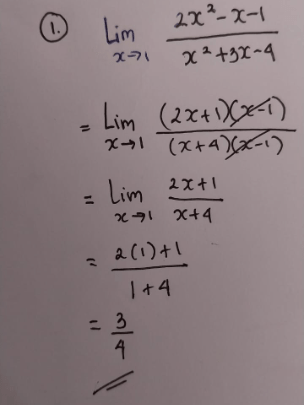 1. Lim x→1 2x² - x - 1 / x² + 3x - 4
= Lim x→1 (2x+1)(x-1) / (x+4)(x-1)
= Lim x→1 2x+1 / x+4
= 2(1)+1 / 1+4
= 3/4